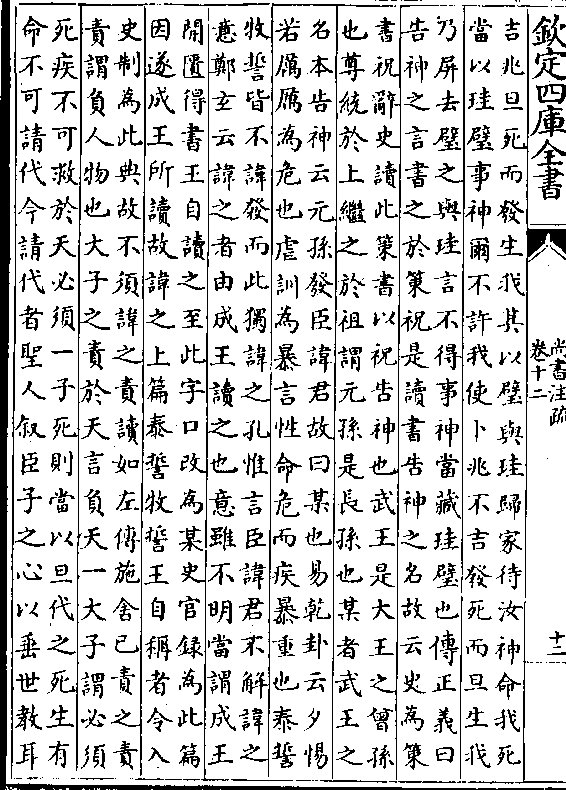 欽定四庫全書
尚書注疏
卷十二
十三
吉兆旦死而發生我其以璧與珪歸家待汝神命我死
當以珪璧事神爾不許我使卜兆不吉發死而旦生我
乃屏去璧之與珪言不得事神當藏珪璧也傳正義曰
告神之言書之於策祝是讀書告神之名故云史為策
書祝辭史讀此策書以祝告神也武王是大王之曾孫
也尊統於上繼之於祖謂元孫是長孫也某者武王之
名本告神云元孫發臣諱君故曰某也易乾卦云夕惕
若厲厲為危也虐訓為暴言性命危而疾暴重也泰誓
牧誓皆不諱發而此獨諱之孔惟言臣諱君不解諱之
意鄭玄云諱之者由成王讀之也意雖不明當謂成王
開匱得書王自讀之至此字口改為某史官録為此篇
因遂成王所讀故諱之上篇泰誓牧誓王自稱者令入
史制為此典故不須諱之責讀如左傳施舍已責之責
責謂負人物也大子之責於天言負天一大子謂必須
死疾不可救於天必須一子死則當以旦代之死生有
命不可請代今請代者聖人叙臣子之心以垂世教耳